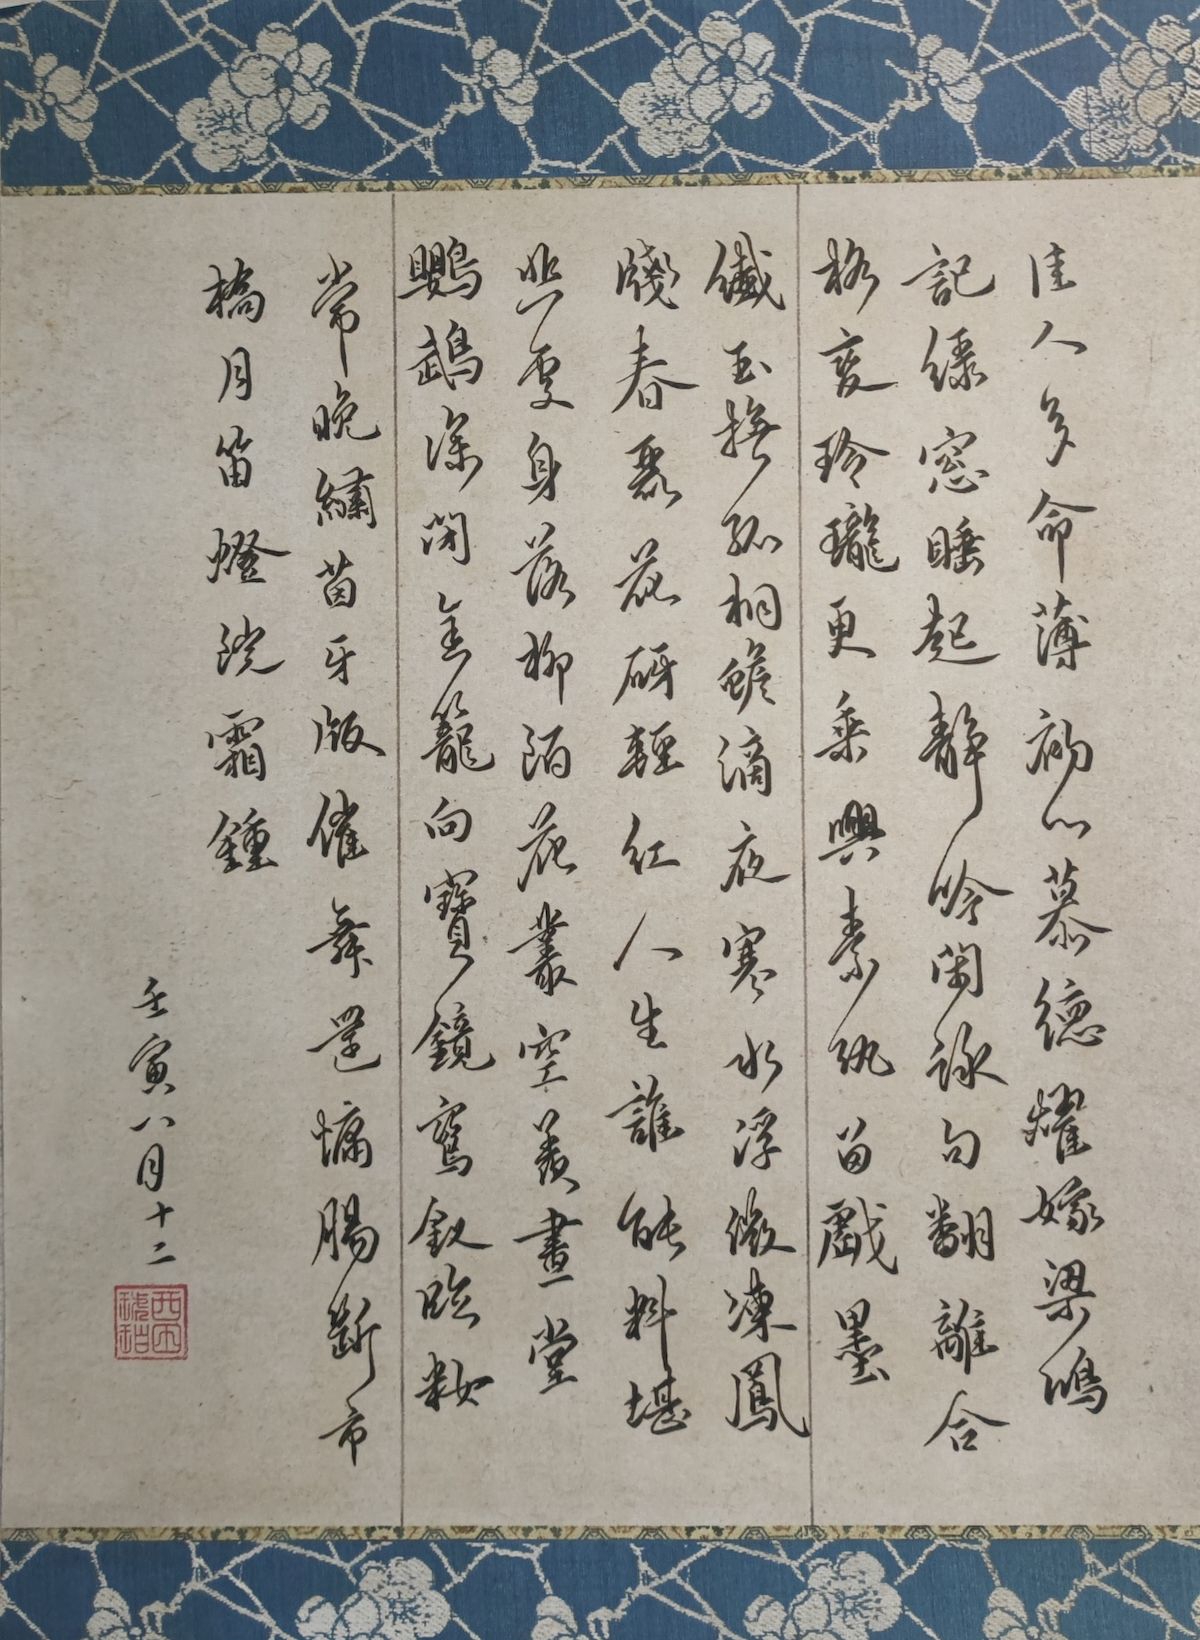 佳人多命薄初心慕德燿嫁梁鴻
記綠窓睡起靜吟閑詠句翻離合
格變玲瓏更乘興素紈留戲墨
纖玉撫孤桐蟾滴夜寒水浮微凍鳳
牋春麗花砑輕紅人生誰能料堪
悲處身落柳陌花叢空羨畫堂
鸚鵡深閉金籠向寶鏡鸞釵臨妝
常晚繡茵牙版催舞還慵腸斷市
橋月笛燈院霜鍾
壬寅八月十二